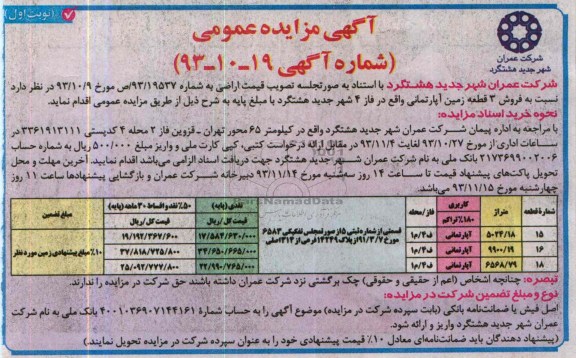 (نوبت اول)
آگهی مزایده عمومی
(شماره آگهی ۱۹-۱۰-۹۳)
شرکت عمران
شهر جدید هشتگرد
شرکت عمران شهر جدید هشتگرد با استناد به صورتجلسه تصویب قیمت اراضی به شماره ۹۳/۱۹۵۳۷/ص مورخ ۹۳/۱۰/۹ در نظر دارد
نسبت به فروش ۳ قطعه زمین آپارتمانی واقع در فاز ۴ شهر جدید هشتگرد با مبلغ پایه به شرح ذیل از طریق مزایده عمومی اقدام نماید.
نحوه خرید اسناد مزایده:
با مراجعه به اداره پیمان شرکت عمران شهر جدید هشتگرد واقع در کیلومتر ۶۵ محور تهران ـ قزوین فاز ۲ محله ۴ کدپستی ۳۳۶۱۹۱۳۱۱۱ در
ساعات اداری از مورخ ۹۳/۱۰/۲۷ لغایت ۹۳/۱۱/۴ در مقابل ارائه درخواست کتبی، کپی کارت ملی و واریز مبلغ ۵۰۰/۰۰۰ ریال به شماره حساب
۲۱۷۳۶۹۹۰۰۲۰۰۶ بانک ملی به نام شرکت عمران شهر جدید هشتگرد جهت دریافت اسناد الزامی می‌باشد اقدام نمایید. آخرین مهلت و محل
تحویل پاکت‌های پیشنهاد قیمت تا ساعت ۱۴ روز سه‌شنبه مورخ ۹۳/۱۱/۱۴ دبیرخانه شرکت عمران و بازگشایی پیشنهادها ساعت ۱۱ روز
چهارشنبه مورخ ۹۳/۱۱/۱۵ می‌باشد.
شماره قطعه متراژ کاربری ۱۸۰٪ تراکم فاز/محله نقدی (پایه) قیمت کل/ریال ۵۰٪ نقد و اقساط ۳۰ ماهه (پایه) قیمت کل/ریال مبلغ تضمین
۱۵ ۵۰۲۴/۱۸ آپارتمانی ف۴/م۱ قسمتی از شماره ثبتی ۵ از صورتمجلس تفکیکی ۶۵۸۳ مورخ ۹۱/۳/۷ از پلاک ۱۴۲۴۹ فرعی از ۳۱۴ اصلی ۱۷/۵۸۴/۶۳۰/۰۰۰ ۱۹/۱۹۲/۳۶۷/۶۰۰ ۱۰٪ مبلغ پیشنهادی زمین مورد نظر
۱۶ ۹۹۰۰/۱۹ آپارتمانی ف۴/م۱ ۳۴/۶۵۰/۶۶۵/۰۰۰ ۳۷/۸۱۸/۷۲۵/۸۰۰
۱۸ ۶۵۶۸/۷۹ آپارتمانی ف۴/م۱ ۲۲/۹۹۰/۷۶۵/۰۰۰ ۲۵/۰۹۲/۷۷۷/۸۰۰
تبصره: چنانچه اشخاص (اعم از حقیقی و حقوقی) چک برگشتی نزد شرکت عمران داشته باشند حق شرکت در مزایده را ندارند.
نوع و مبلغ تضمین شرکت در مزایده:
اصل فیش یا ضمانت‌نامه بانکی (بابت سپرده شرکت در مزایده) موضوع آگهی را به حساب شماره ۴۰۰۱۰۳۶۹۰۷۱۴۴۱۶۱ بانک ملی به نام شرکت
عمران شهر جدید هشتگرد واریز و ارائه شود.
(پیشنهاد دهندگان باید ضمانت‌نامه‌ای معادل ۱۰٪ قیمت پیشنهادی خود را به عنوان سپرده شرکت در مزایده تحویل نمایند.)